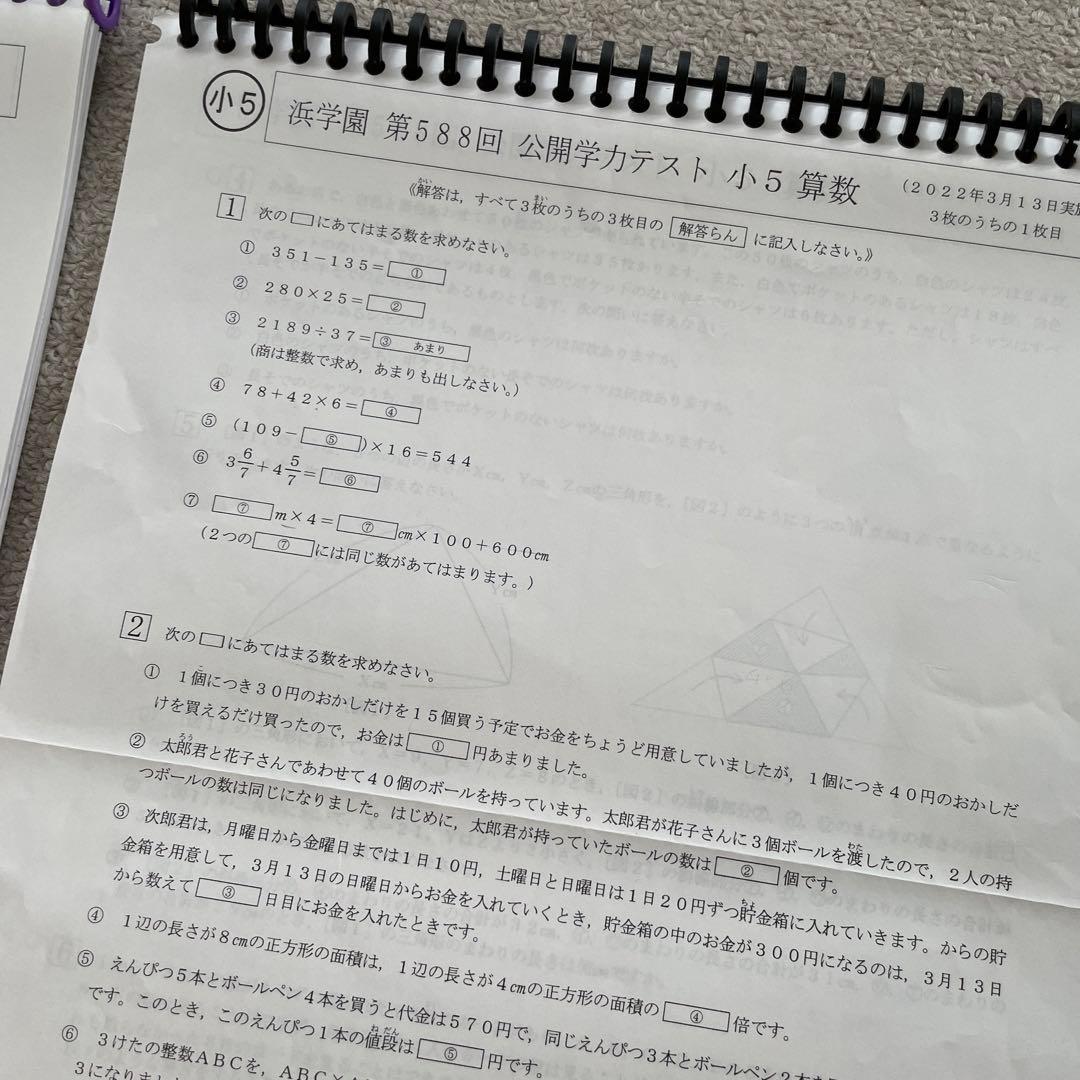 小5
浜学園 第588回 公開学力テスト 小5 算数
(2022年3月13日実施
3枚のうちの1枚目
《解答は，すべて3枚のうちの3枚目の 解答らん に記入しなさい。》
1 次の□にあてはまる数を求めなさい。
① 351－135＝①
② 280×25＝②
③ 2189÷37＝③ あまり
(商は整数で求め，あまりも出しなさい。)
④ 78＋42×6＝④
⑤ (109－⑤)×16＝544
⑥ 3 6/7＋4 5/7＝⑥
⑦ ⑦m×4＝⑦cm×100＋600cm
(2つの⑦には同じ数があてはまります。)
2 次の□にあてはまる数を求めなさい。
① 1個につき30円のおかしだけを15個買う予定でお金をちょうど用意していましたが，1個につき40円のおかしだ
けを買えるだけ買ったので，お金は①円あまりました。
② 太郎君と花子さんであわせて40個のボールを持っています。太郎君が花子さんに3個ボールを渡したので，2人の持
つボールの数は同じになりました。はじめに，太郎君が持っていたボールの数は②個です。
③ 次郎君は，月曜日から金曜日までは1日10円，土曜日と日曜日は1日20円ずつ貯金箱に入れていきます。からの貯
金箱を用意して，3月13日の日曜日からお金を入れていくとき，貯金箱の中のお金が300円になるのは，3月13日
から数えて③日目にお金を入れたときです。
④ 1辺の長さが8cmの正方形の面積は，1辺の長さが4cmの正方形の面積の④倍です。
⑤ えんぴつ5本とボールペン4本を買うと代金は570円で，同じえんぴつ3本とボールペン2本を
です。このとき，このえんぴつ1本の値段は⑤円です。
⑥ 3けたの整数ABCを，ABC×
3になりました